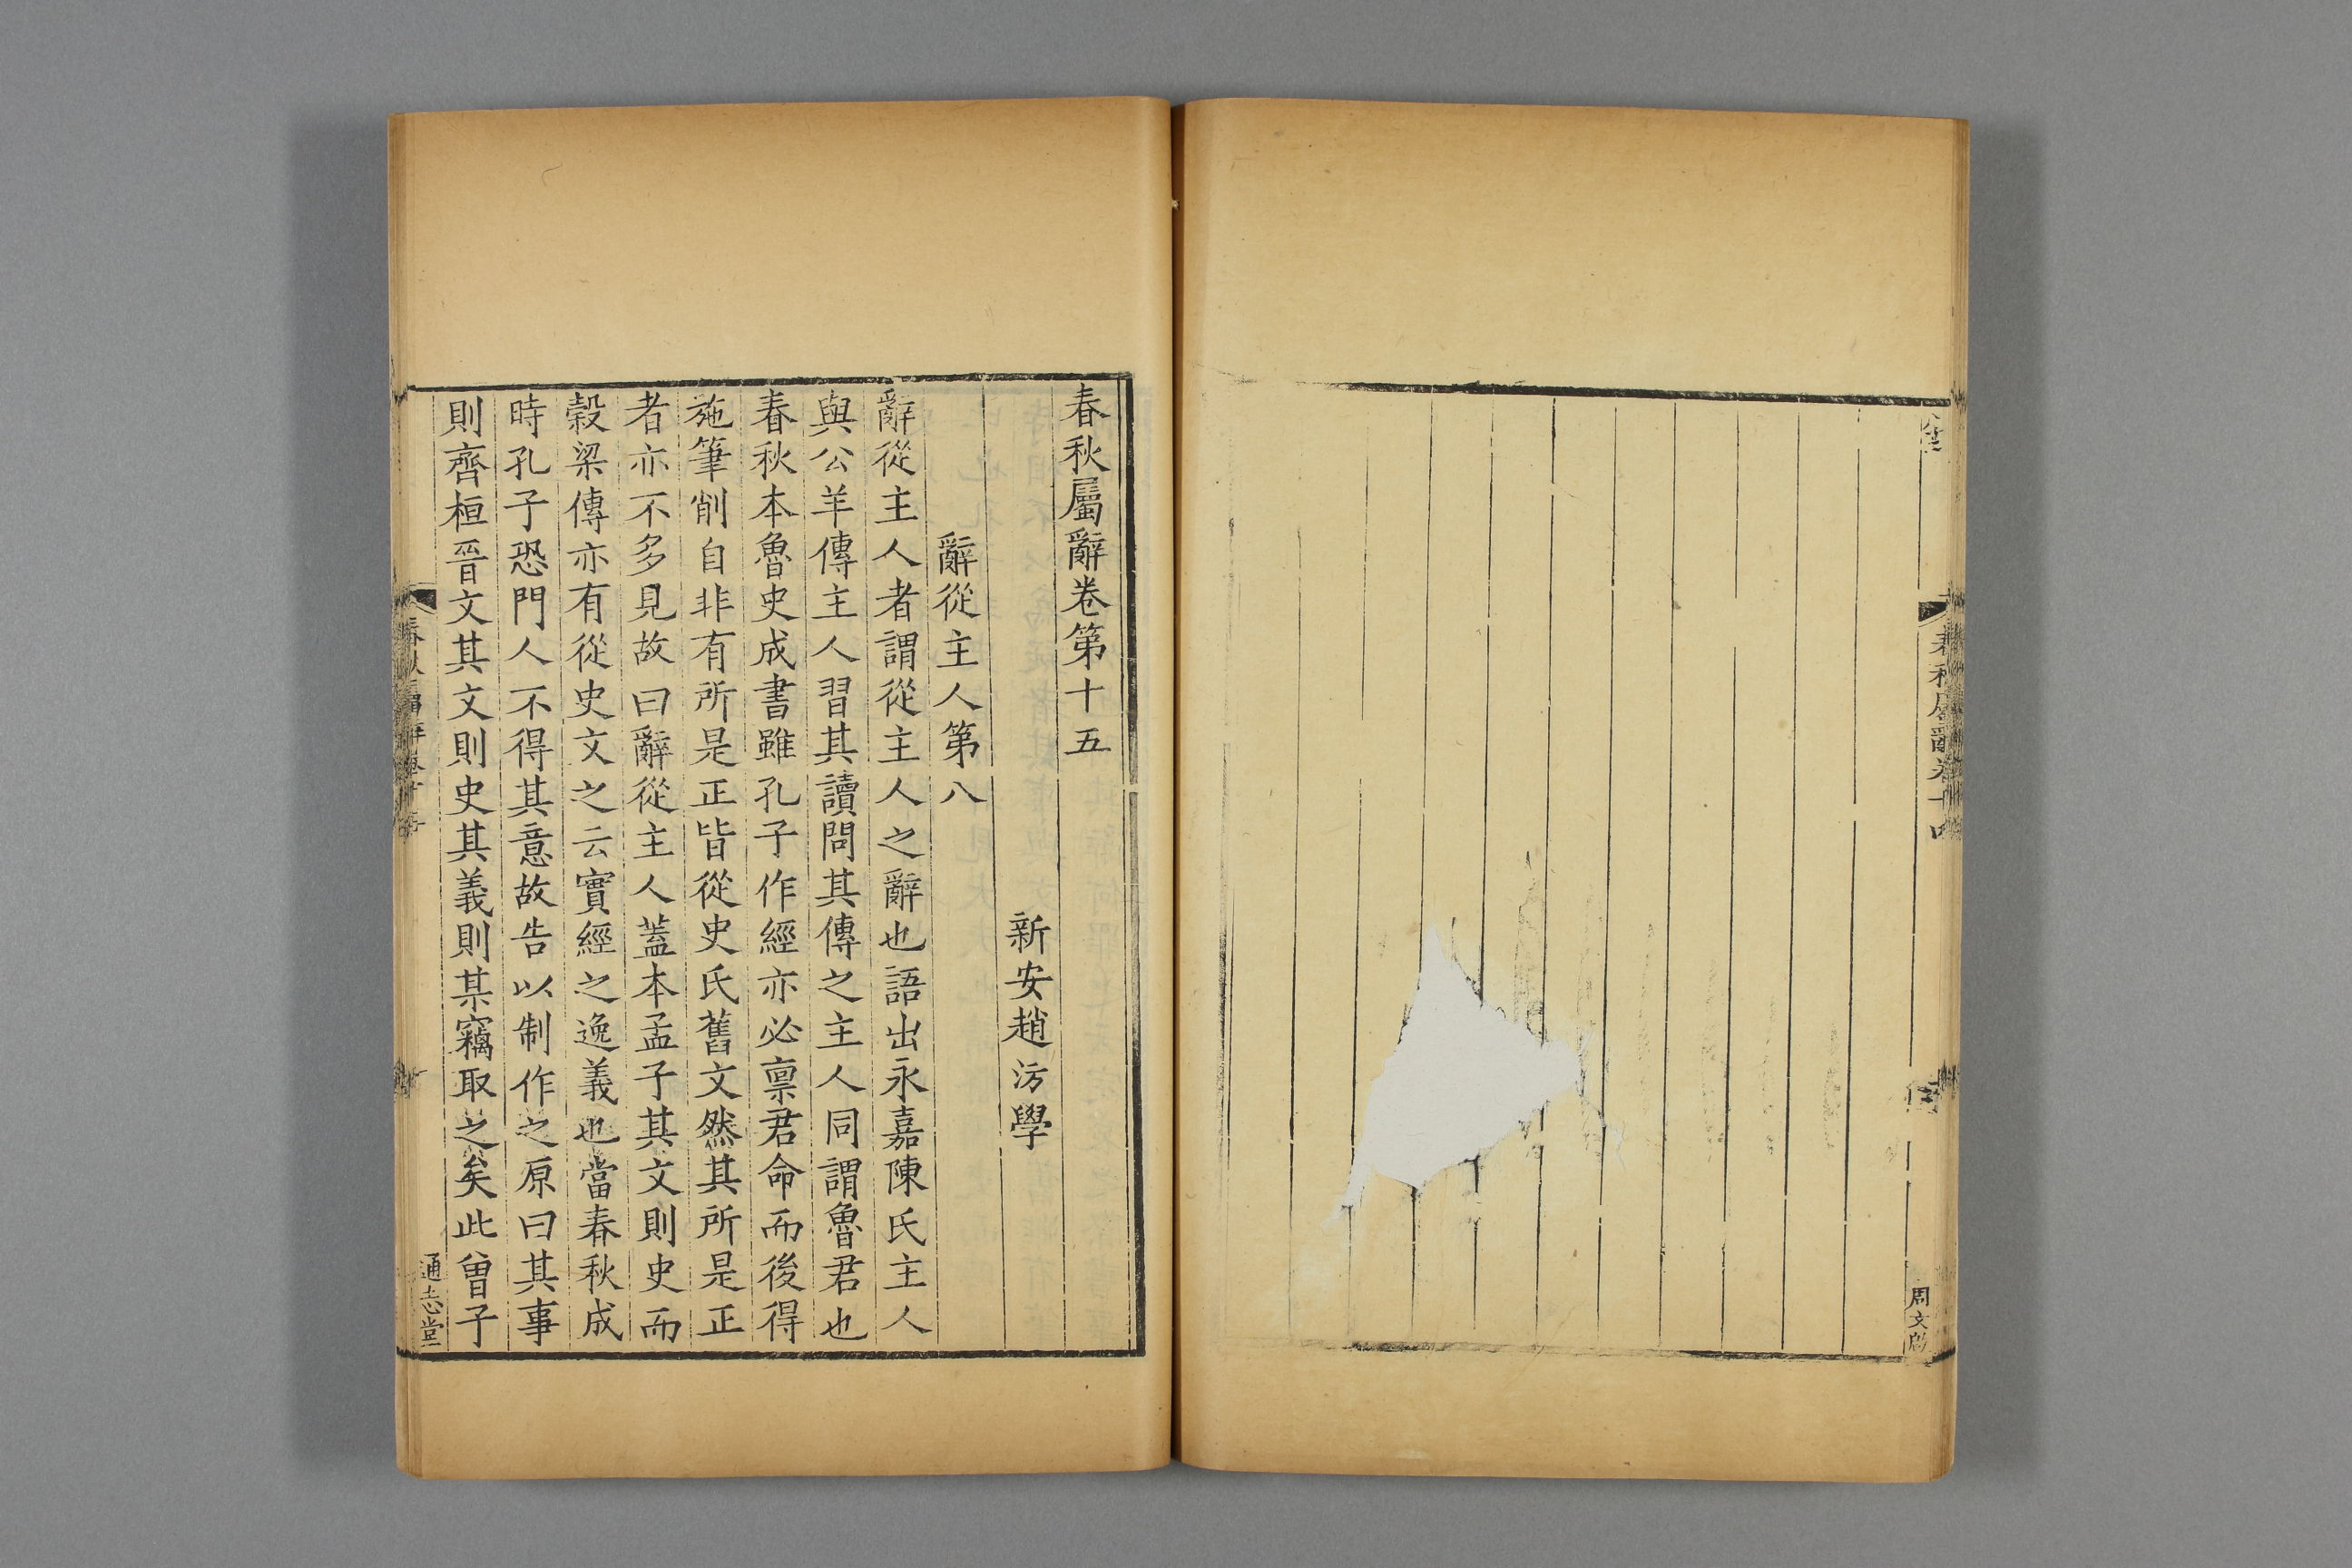 春秋屬辭卷十四
周文啟
春秋屬辭卷第十五
新安趙汸學
辭從主人第八
辭從主人者謂從主人之辭也語出永嘉陳氏主人
與公羊傳主人習其讀問其傳之主人同謂魯君也
春秋本魯史成書雖孔子作經亦必禀君命而後得
施筆削自非有所是正皆從史氏舊文然其所是正
者亦不多見故曰辭從主人蓋本孟子其文則史而
穀梁傳亦有從史文之云實經之逸義也當春秋成
時孔子恐門人不得其意故告以制作之原曰其事
則齊桓晉文其文則史其義則某竊取之矣此曾子
通志堂